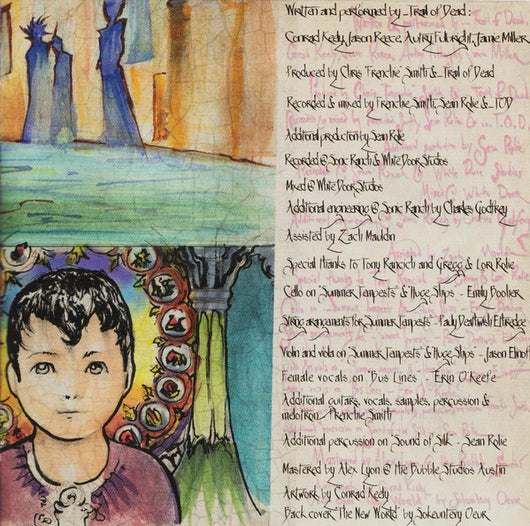 Written and performed by ...Trail of Dead :
Conrad Keely, Jason Reece, Autry Fulbright, Jamie Miller
Produced by Chris "Frenchie" Smith & ...Trail of Dead
Recorded & mixed by Frenchie Smith, Sean Rolie & ...TOD
Additional production by Sean Rolie
Recorded @ Sonic Ranch & White Door Studios
Mixed @ White Door Studios
Additional engineering @ Sonic Ranch by Charles Godfrey
Assisted by Zach Mauldin
Special thanks to Tony Rancich and Gregg & Lori Rolie
Cello on "Summer Tempests" & "Huge Ships" - Emily Booher
String arrangements for "Summer Tempests" - Pauly Deathwish Ethredge
Violin and viola on "Summer Tempests" & "Huge Ships" - Jason Elinoff
Female vocals on "Bus Lines" - Erin O'Keefe
Additional guitars, vocals, samples, percussion &
mellotron - Frenchie Smith
Additional percussion on "Sound of Silk" - Sean Rolie
Mastered by Alex Lyon @ the Bubble Studios Austin
Artwork by Conrad Keely
Back cover "The New World" by